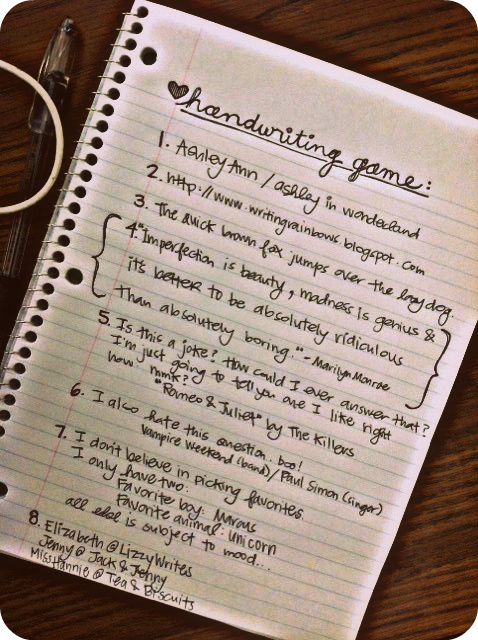 handwriting game:
1. Ashley Ann / ashley in wonderland
2. http://www.writingrainbows.blogspot.com
3. The quick brown fox jumps over the lazy dog.
4. "Imperfection is beauty, madness is genius &
it's better to be absolutely ridiculous
Than absolutely boring." - Marilyn Monroe
5. Is this a joke? How could I ever answer that?
I'm just going to tell you one I like right
now - mmk?
"Romeo & Juliet" by The Killers
6. I also hate this question. boo!
Vampire Weekend (band) / Paul Simon (singer)
7. I don't believe in picking favorites.
I only have two:
Favorite boy: Marcus
Favorite animal: Unicorn
all else is subject to mood...
8. Elizabeth @ LizzyWrites
Jenny @ Jack & Jenny
Miss Hannie @ Tea & Biscuits